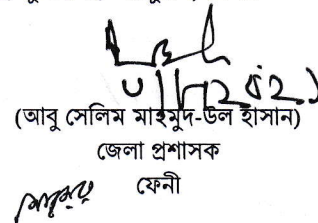 (আবু সেলিম মাহমুদ-উল হাসান)
জেলা প্রশাসক
ফেনী